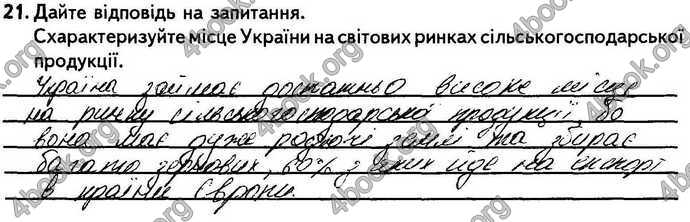 21. Дайте відповідь на запитання.
Схарактеризуйте місце України на світових ринках сільськогосподарської
продукції.
Україна займає достатньо високе місце
на ринку сільськогосподарської продукції, бо
вона має дуже родючі землі та збирає
багато зернових, 60% з яких йде на експорт
в країни Європи.
4book.org